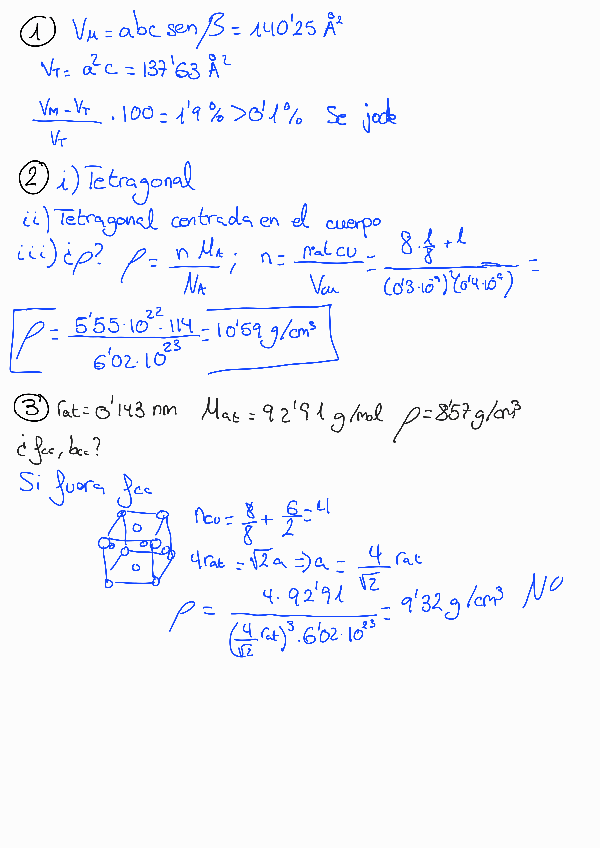 1) V_M = abc sen β = 140'25 Å²
V_T = a²c = 137'63 Å²
(V_M - V_T)/V_T · 100 = 1'9% > 0'1% Se jode
2) i) Tetragonal
ii) Tetragonal centrada en el cuerpo
iii) ¿ρ? ρ = (n M_A)/N_A ; n = (nºat cu)/V_cu = (8 · 1/8 + 1)/((0'3·10⁻⁹)²(0'4·10⁻⁹)) =
ρ = (5'55·10²² · 114)/(6'02·10²³) = 10'59 g/cm³
3) r_at = 0'143 nm M_at = 92'91 g/mol ρ = 8'57 g/cm³
¿fcc, bcc?
Si fuera fcc
n_cu = 8/8 + 6/2 = 4
4r_at = √2 a ⇒ a = 4/√2 r_at
ρ = (4 · 92'91)/((4/√2 r_at)³ · 6'02·10²³) = 9'32 g/cm³ NO